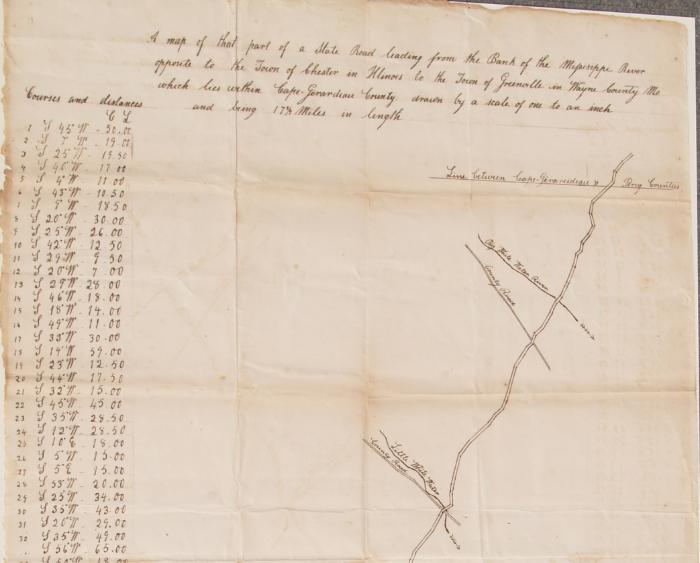 A map of that part of a State Road leading from the Bank of the Missisippe River
opposite to the Town of Chester in Illinois to the Town of Greenville in Wayne County Mo
which lies within Cape-Gerardieau County drawn by a scale of one to an inch
and being 17¾ Miles in length
Courses and distances
C L
1 S 45 W - 50.00
2 S 7 W - 19.00
3 S 25 W - 19.50
4 S 40 W - 17.00
5 S 4 W 11.00
6 S 43 W - 10.50
7 S 5 W - 18.50
8 S 20 W - 30.00
9 S 25 W - 26.00
10 S 42 W - 12.50
11 S 29 W - 9.50
12 S 20 W - 7.00
13 S 29 W 28.00
14 S 46 W - 18.00
15 S 18 W - 14.00
16 S 49 W - 11.00
17 S 35 W - 30.00
18 S 19 W - 59.00
19 S 23 W - 12.50
20 S 44 W - 17.50
21 S 32 W - 15.00
22 S 45 W - 45.00
23 S 35 W - 28.50
24 S 12 W - 28.50
25 S 10 E - 18.00
26 S 5 W - 15.00
27 S 5 E - 15.00
28 S 55 W - 20.00
29 S 25 W - 34.00
30 S 35 W - 43.00
31 S 20 W - 29.00
32 S 35 W - 49.00
S 56 W - 65.00
Line between Cape-Gerardieau & Pery Counties
Big White Water River
County Road
Little White Water
County Road